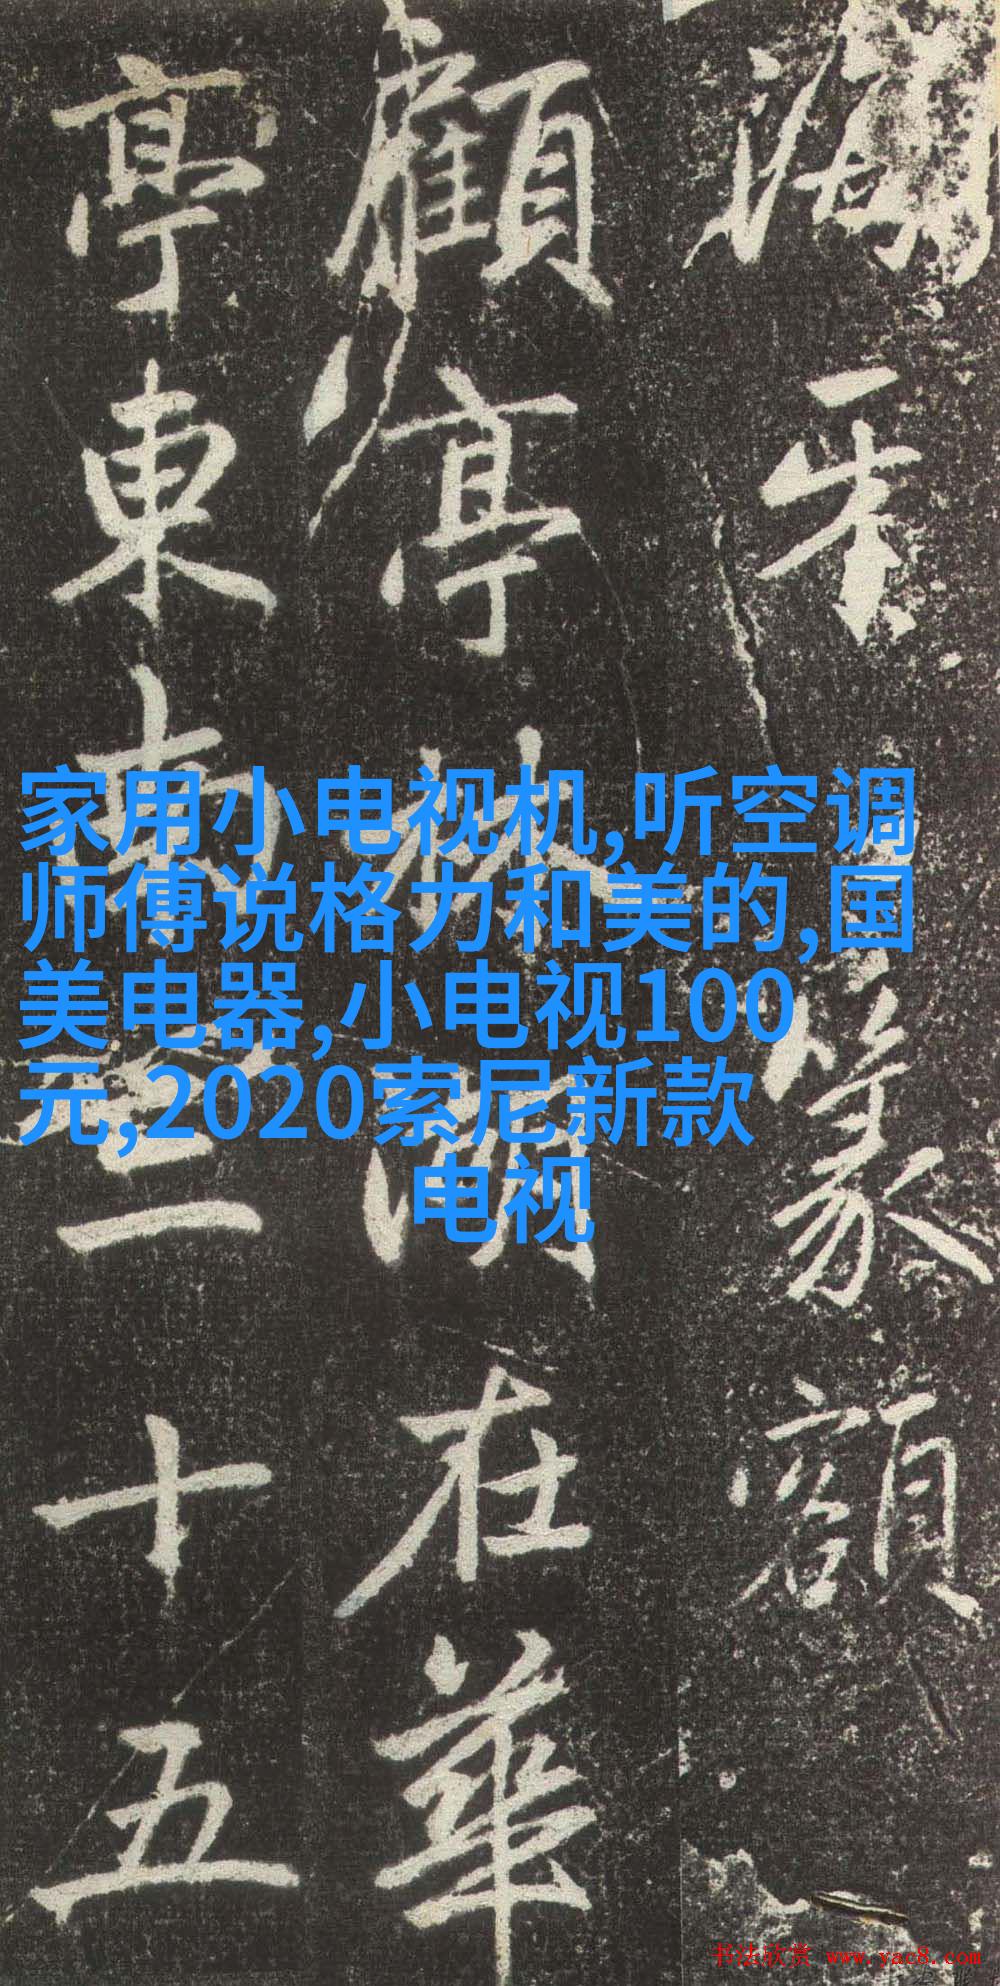 家用小电视机,听空调
师傅说格力和美的,国
美电器,小电视100
元,2020索尼新款
电视
篆額
顧亭林湖在華
亭東南三十五
书法欣赏 www.yac8.com